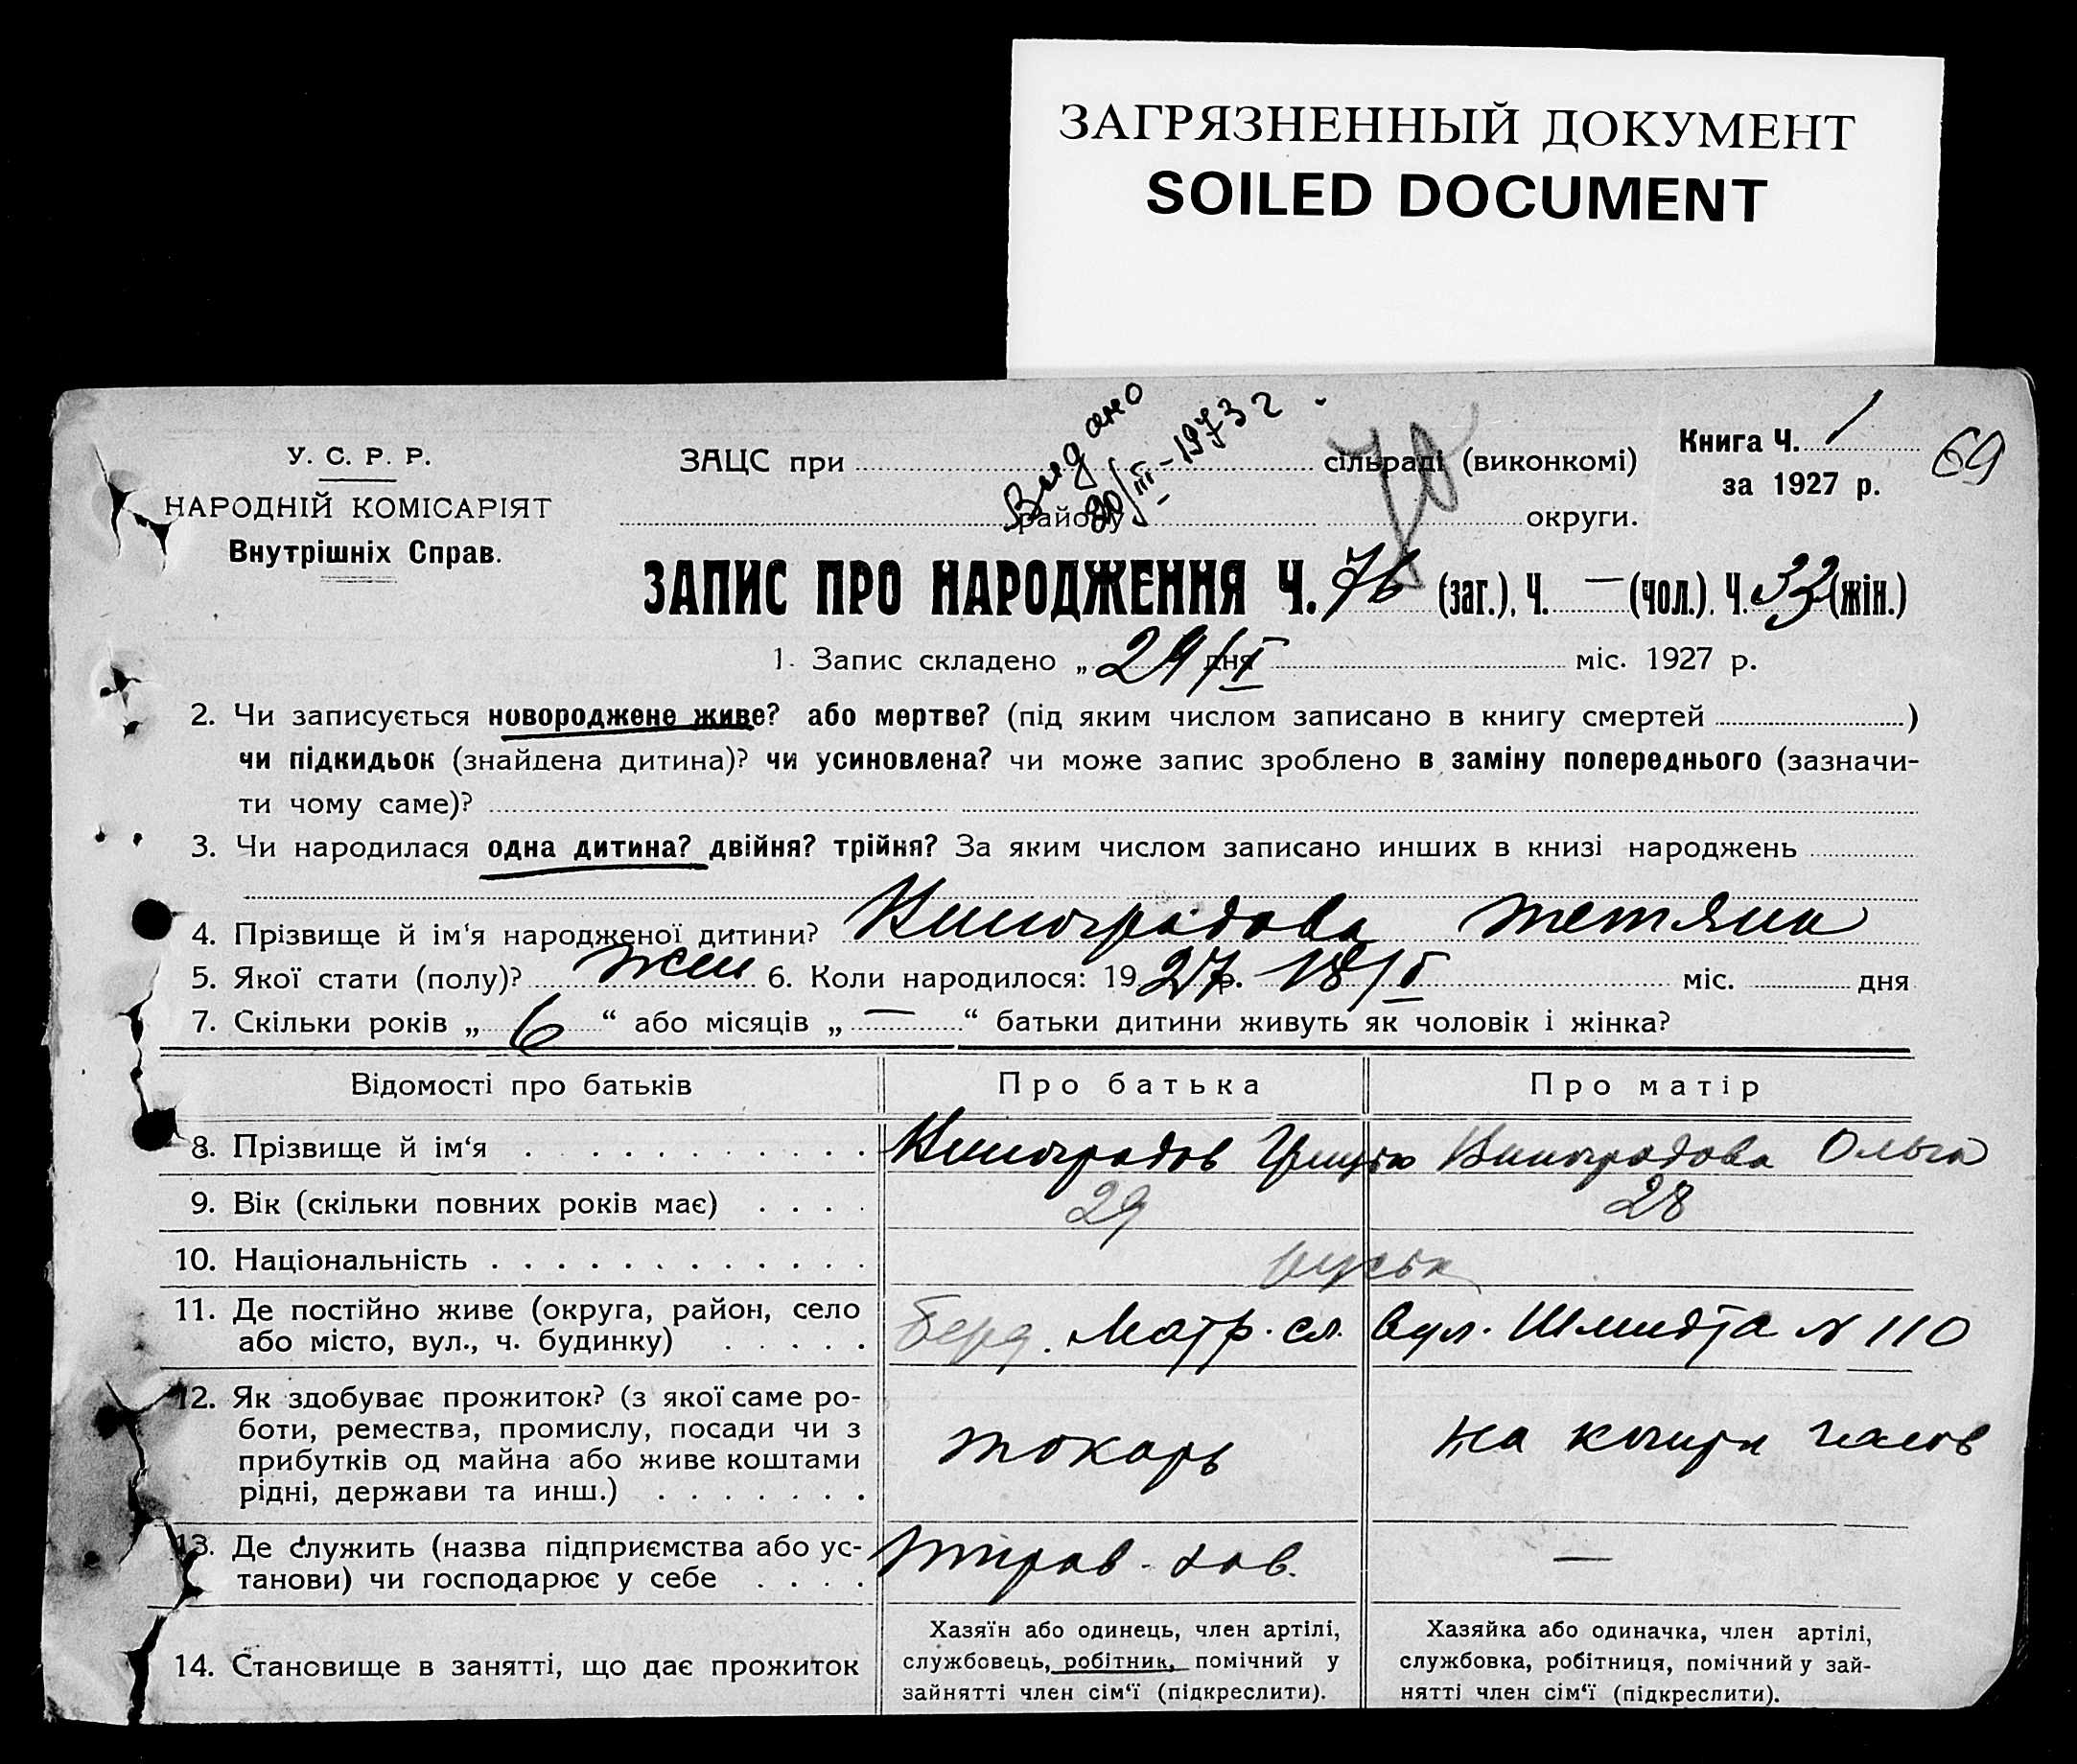 ЗАГРЯЗНЕННЫЙ ДОКУМЕНТ
SOILED DOCUMENT
У. С. Р. Р.
НАРОДНІЙ КОМІСАРІЯТ
Внутрішніх Справ.
ЗАЦС при сільраді (виконкомі)
району округи.
Видано
20/III-1973 г.
70
Книга Ч. 1
за 1927 р.
69
ЗАПИС ПРО НАРОДЖЕННЯ Ч. 76 (заг.), Ч. — (чол.), Ч. 33 (жін.)
1. Запис складено „ 29/I дня міс. 1927 р.
2. Чи записується новороджене живе? або мертве? (під яким числом записано в книгу смертей )
чи підкидьок (знайдена дитина)? чи усиновлена? чи може запис зроблено в заміну попереднього (зазначи-
ти чому саме)?
3. Чи народилася одна дитина? двійня? трійня? За яким числом записано инших в книзі народжень
4. Прізвище й ім'я народженої дитини? Виноградова Тетяна
5. Якої стати (полу)? жен 6. Коли народилося: 1927 р. 18/I міс. дня
7. Скільки років „ 6 “ або місяців „ — “ батьки дитини живуть як чоловік і жінка?
Відомості про батьків Про батька Про матір
8. Прізвище й ім‘я Виноградов Виноградова Ольга
9. Вік (скільки повних років має) 29 28
10. Національність
11. Де постійно живе (округа, район, село
або місто, вул., ч. будинку) Берд. Матр. сл. вул. Шмидта № 110
12. Як здобуває прожиток? (з якої саме ро-
боти, ремества, промислу, посади чи з
прибутків од майна або живе коштами
рідні, держави та инш.) токарь на
13. Де служить (назва підприємства або ус-
танови) чи господарює у себе —
14. Становище в занятті, що дає прожиток
Хазяїн або одинець, член артілі,
службовець, робітник, помічний у
зайнятті член сім‘ї (підкреслити).
Хазяйка або одиначка, член артілі,
службовка, робітниця, помічний у зай-
нятті член сім‘ї (підкреслити).